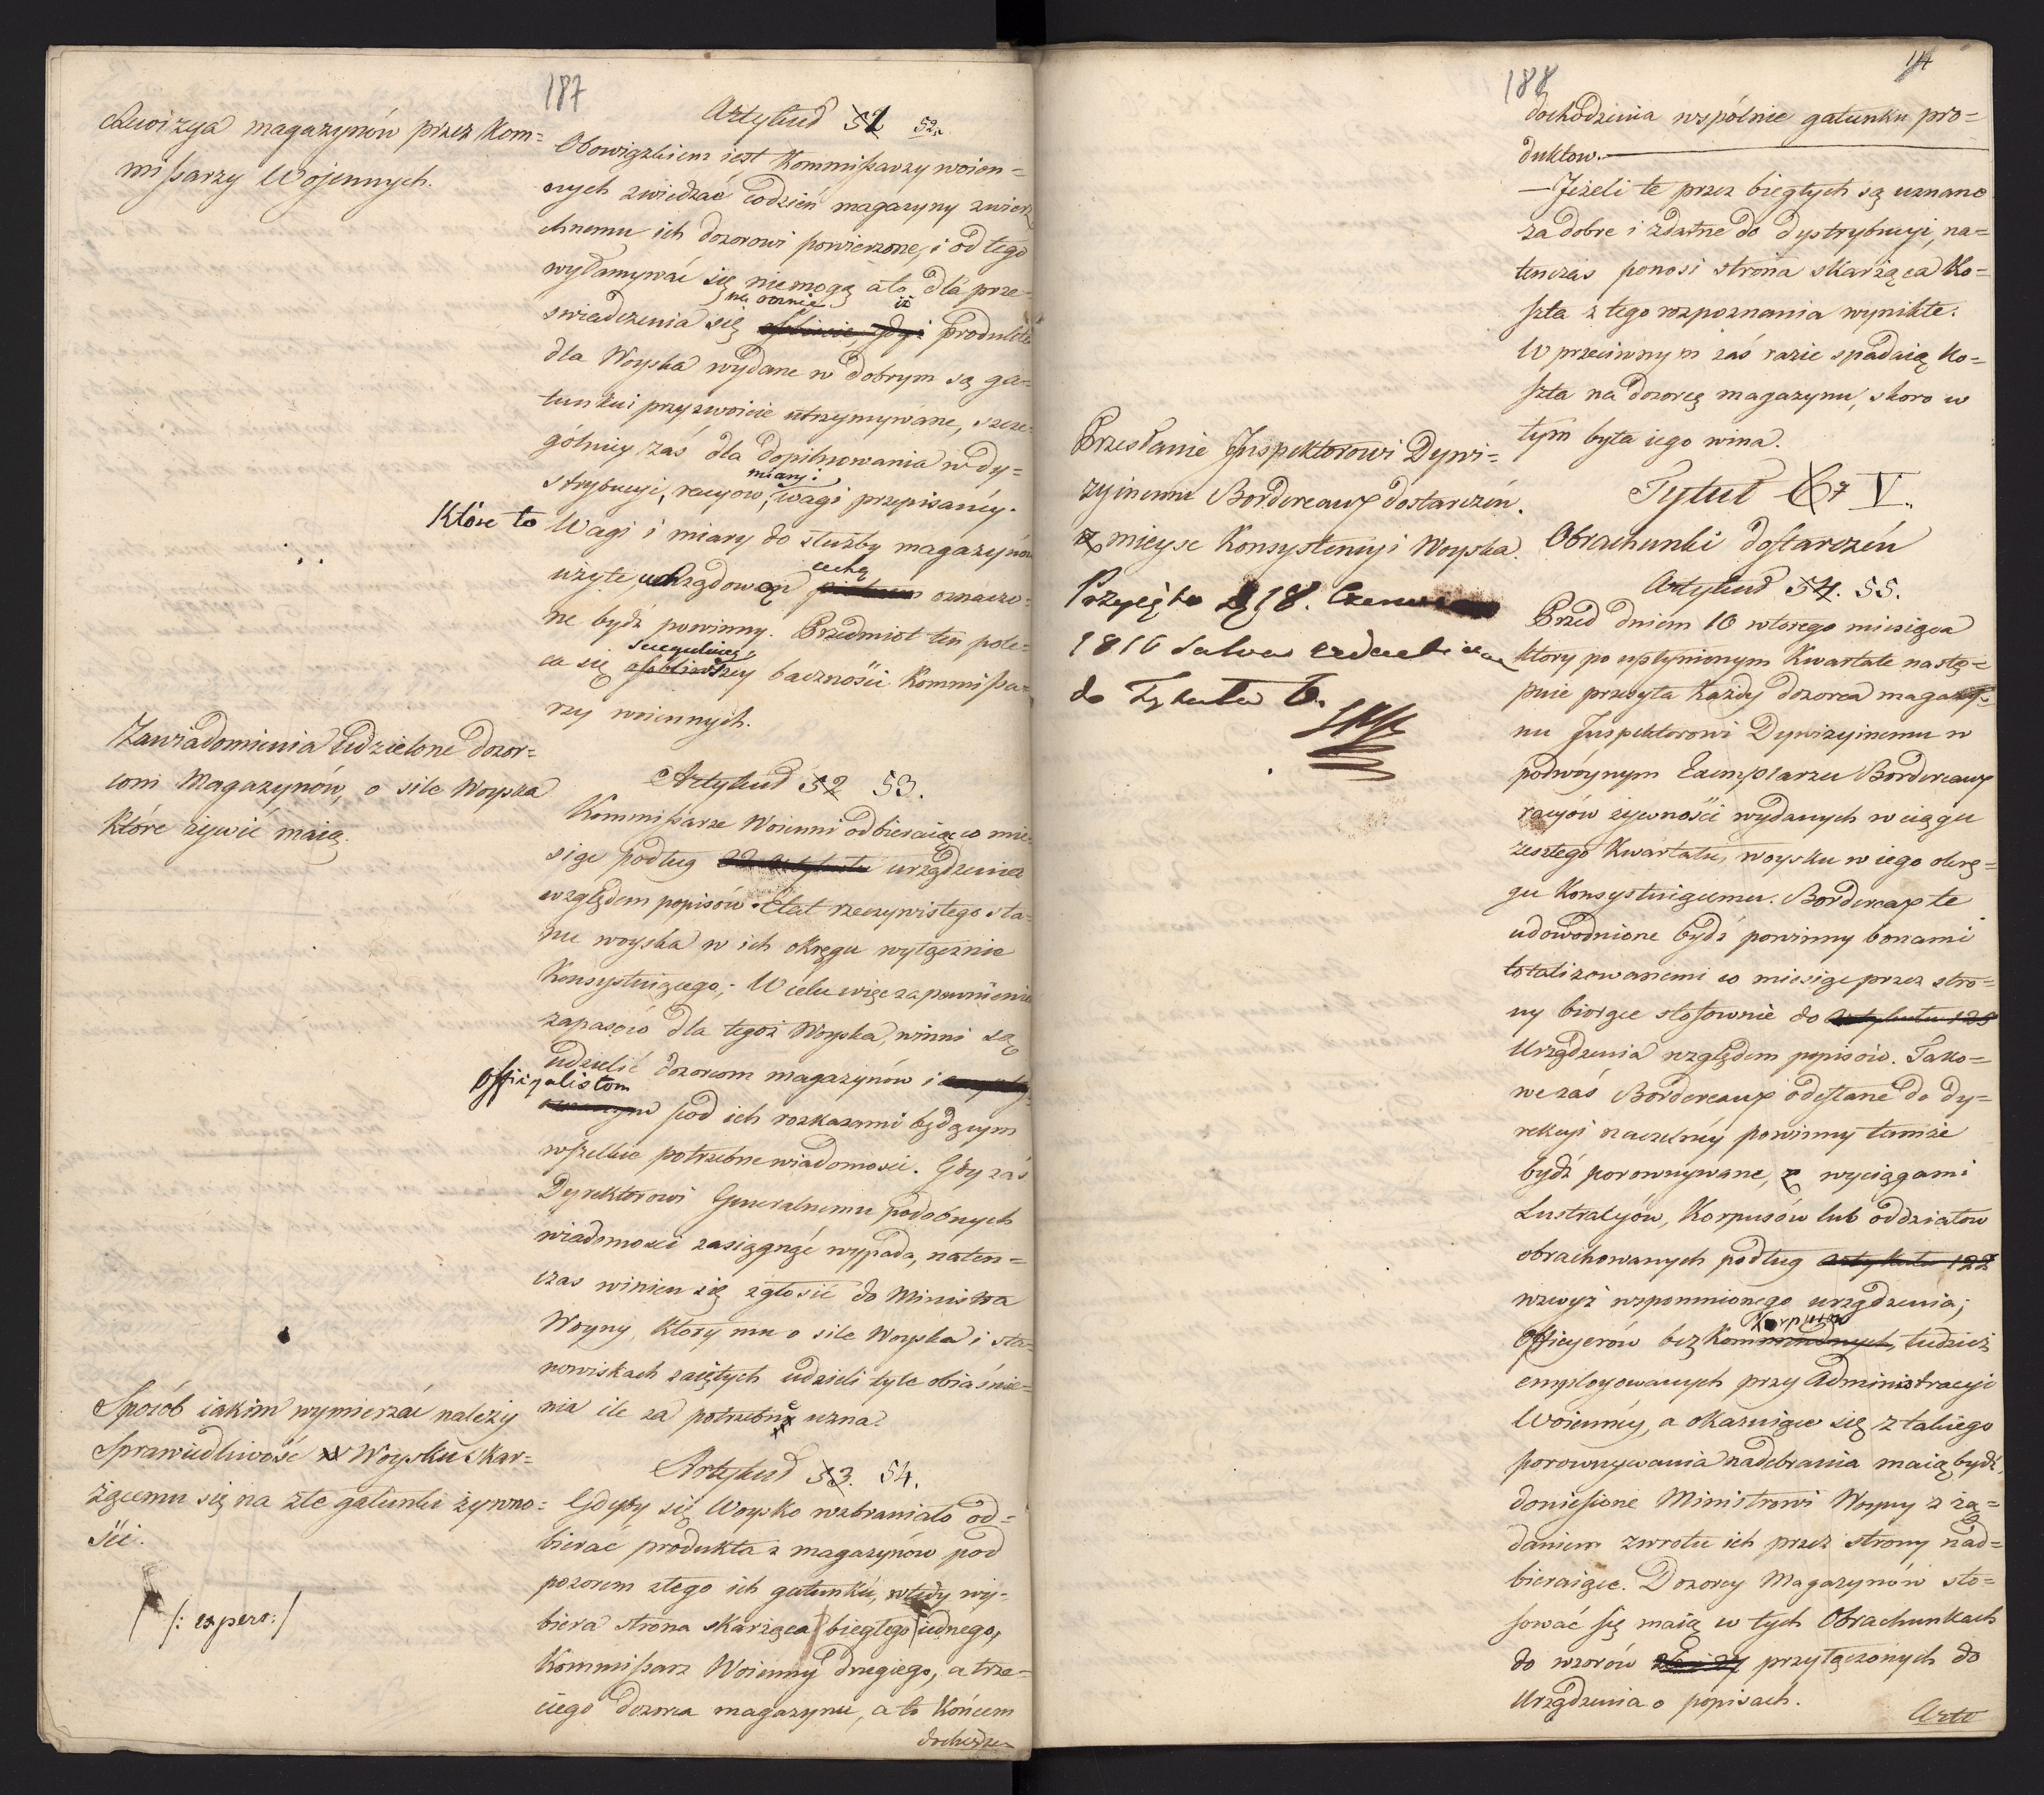 187
Rewizya magazynów przez Kom=
mißarzy Wojennych.
Artykuł 51 52.
Obowiązkiem jest Kommißarzy woien=
nych zwiedzać codzień magazyny zwierz
chnemu ich dozorowi powierzone, i od tego
wyłamywać się niemogą a to dla prze=
naocznie iż
świadczenia się produkta
dla Woyska wydane w dobrym są ga=
tunku i przyzwoicie utrzymywane, szcze=
gólniey zaś dla dopilnowania w dy=
miary i
strybucyi, racyow, wagi przepisanéy.
Które to Wagi i miary do służby magazynów
cechą
użyte, urządową oznaczo=
ne bydź powinny. Przedmiot ten pole=
szczególniey
ca się osobliwszey baczności Kommißa=
rzy woiennych.
Zawiadomienia Udzielone dozor=
com Magazynów, o sile Woyska
które żywić maią.
Artykuł 52 53.
Kommißarze Woienni odbieraiąc co mie=
siąc podług urządzenia
względem popisów Etat rzeczywistego sta=
nu woyska w ich okręgu wyłącznie
Konsystuiącego; W celu więc zapewnienia
zapasów dla tegoż Woyska, winni są
udzielić dozorcom magazynów i
Officyalistom
pod ich rozkazami będącym
wszelkie potrzebne wiadomości. Gdy zaś
Dyrektorowi Generalnemu podobnych
wiadomości zasięgnąć wypada, naten=
czas winien się zgłosić do Ministra
Woyny, który mu o sile Woyska i sta=
nowiskach zaiętych udzieli tyle obiaśnie=
nia ile za potrzebne uzna.
Sposób iakim wymierzać należy
Sprawiedliwość Woysku skar=
żącemu się na złe gatunki żywno=
ści.
/: expero:/
Artykuł 53. 54.
Gdyby się Woysko wzbraniało od=
bierać produkta z magazynów pod
pozorem złego ich gatunku, wtedy wy=
biera strona skarżąca biegłego iednego,
Kommißarz Woienny drugiego, a trze=
ciego dozorca magazynu, a to końcem
dochodze
14
188
dochodzenia wspólnie gatunku pro=
duktow.
— Jeżeli te przez biegłych są uznane
za dobre i zdatne do dystrybucyi, na=
tenczas ponosi strona skarżąca Ko=
szta z tego rozpoznania wynikłe.
W przeciwnym zaś razie spadaią Ko=
szta na dozorcę magazynu, skoro w
tym była iego wina.
Tytuł V.
Obrachunki dostarczéń
Przesłanie Inspektorowi Dywi=
zyinemu Bordereaux dostarczéń.
z mieysc Konsystencyi Woyska.
Przyjęto d 18. Czerwca
1816 Salva
do Tytułu 6.
Artykuł 54. 55.
Przed dniem 10 wtorego miesiąca
który po upłynionym Kwartale nastę=
pnie przesyła każdy dozorca magazy=
nu Inspektorowi Dywizyinemu w
podwóynym Exemplarzu Bordereaux
racyów żywności wydanych w ciągu
zeszłego Kwartału, woysku w iego okrę=
gu Konsystuiącemu. Bordereaux te
udowodnione bydź powinny bonami
totalizowanemi co miesiąc przez stro=
ny biorące stosownie do artykułu 125
Urządzenia względem popisów. Tako=
we zaś Bordereaux odesłane do dy=
rekcyi naczelnéy powinny tamże
bydź porownywane, z wyciągami
Lustracyów, Korpusów lub oddziałow
obrachowanych podług artykułu 122
wzwyż wspomnionego urządzenia;
Korpusów
Officyerów bez Kommendnych, tudzież
employowanych przy Administracyi
Woiennéy, a okazuiące się z takiego
porownywania nadebrania maią bydź
doniesione Ministrowi Woyny z żą=
daniem zwrotu ich przez strony nad=
bieraiące. Dozorcy Magazynów sto=
sować się maią w tych Obrachunkach
do wzorów przyłączonych do
Urządzenia o popisach.
Arty